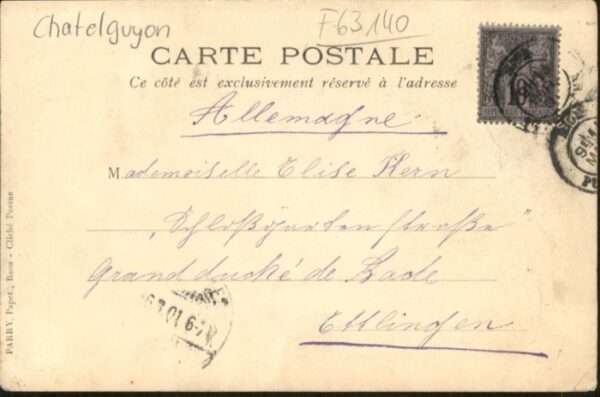 Chatelguyon
F63140
CARTE POSTALE
Ce côté est exclusivement réservé à l'adresse
Allemagne
Mademoiselle Elise Kern
„Schloßgartenstraße"
Grand duché de Bade
Ettlingen
PARRY, Papet., Riom - Cliché Poesne